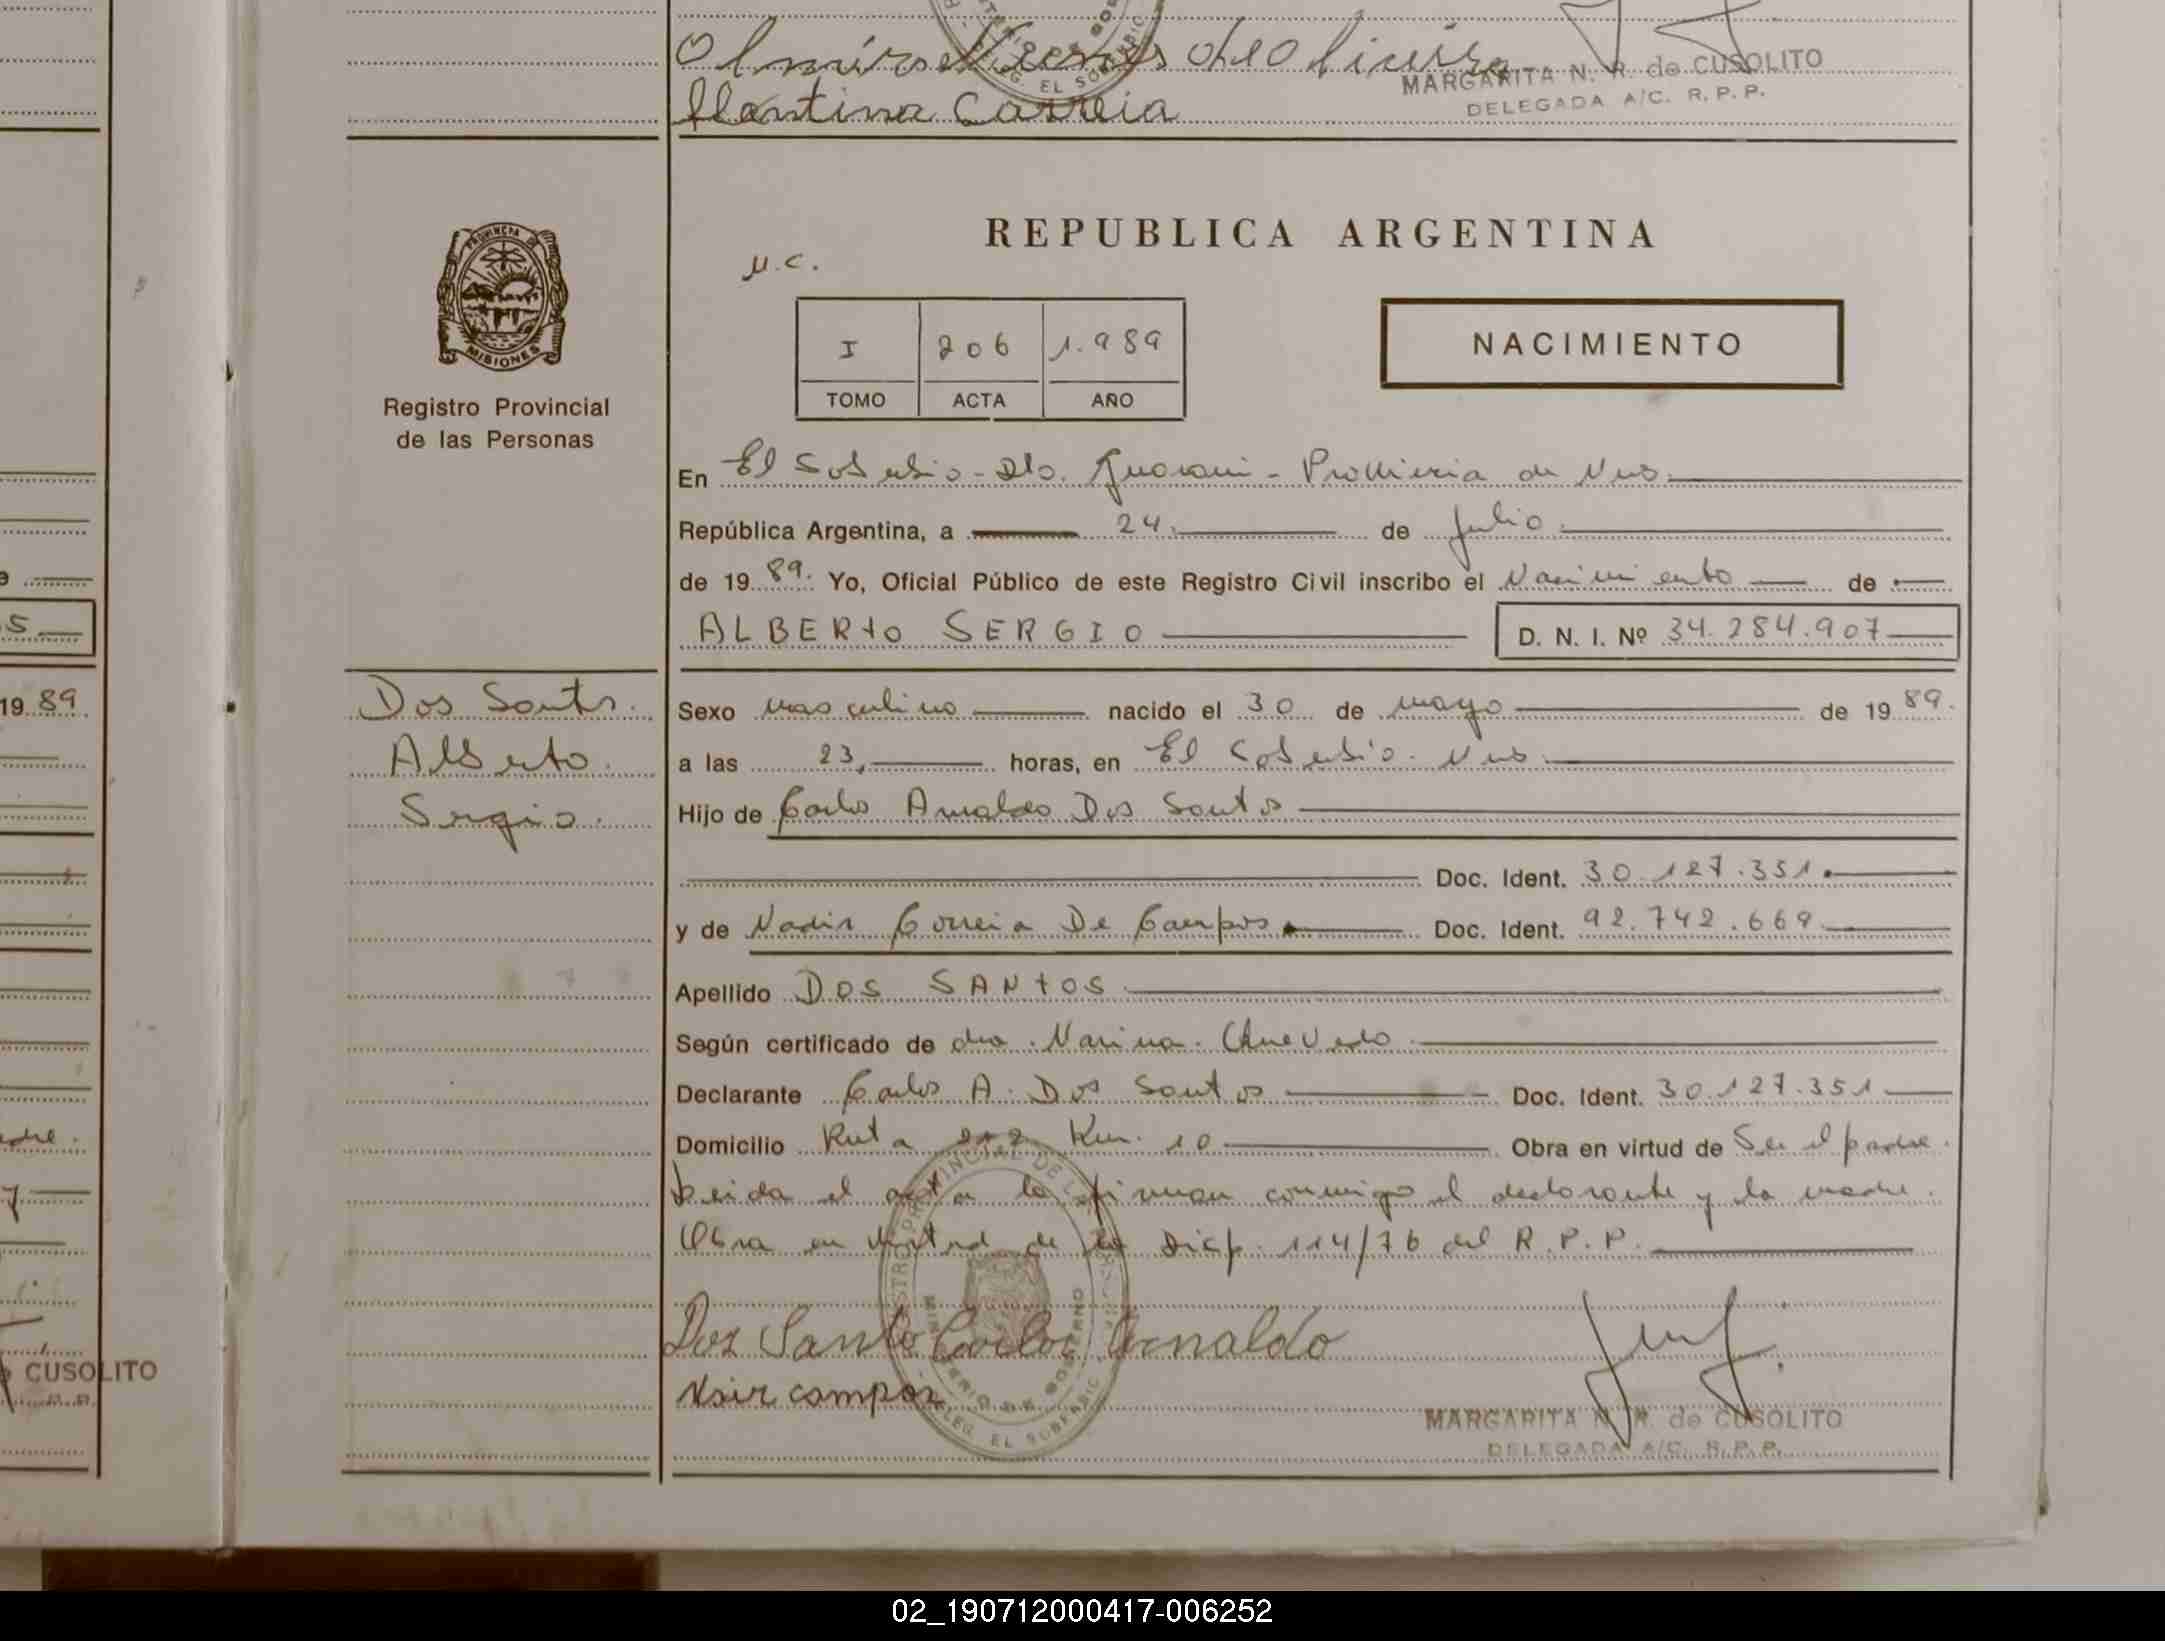 Olmiro Neres de Oliveira
MARGARITA N. R. de CUSOLITO
DELEGADA A/C. R. P. P.
Correia
PROVINCIA DE
MISIONES
Registro Provincial
de las Personas
REPUBLICA ARGENTINA
M.C.
I 206 1.989
TOMO ACTA AÑO
NACIMIENTO
En El Soberbio - Dto. Guarani - Provincia de Mnes
República Argentina, a 24. de Julio.
de 1989. Yo, Oficial Público de este Registro Civil inscribo el Nacimiento de
ALBERTO SERGIO D. N. I. Nº 34.284.907
Dos Santos.
Alberto.
Sergio.
Sexo masculino nacido el 30 de mayo de 1989.
a las 23, horas, en El Soberbio. Mnes
Hijo de Carlos Arnaldo Dos Santos
Doc. Ident. 30.127.351.
y de Nadir Correia De Campos. Doc. Ident. 92.742.669
Apellido DOS SANTOS
Según certificado de dra. Marina.
Declarante Carlos A. Dos Santos Doc. Ident. 30.127.351
Domicilio Ruta 2 Km. 10 Obra en virtud de Ser el padre.
Leida el acta la firman conmigo el declarante y la madre.
Obra en virtud de la Disp. 114/76 del R.P.P.
Dos Santo Carlos Arnaldo
Nair campos
MARGARITA N. R. de CUSOLITO
DELEGADA A/C. R. P. P.
REGISTRO PROVINCIAL DE LAS PERSONAS
MINISTERIO DE GOBIERNO
DELEG. EL SOBERBIO
5
1989
CUSOLITO
02_190712000417-006252